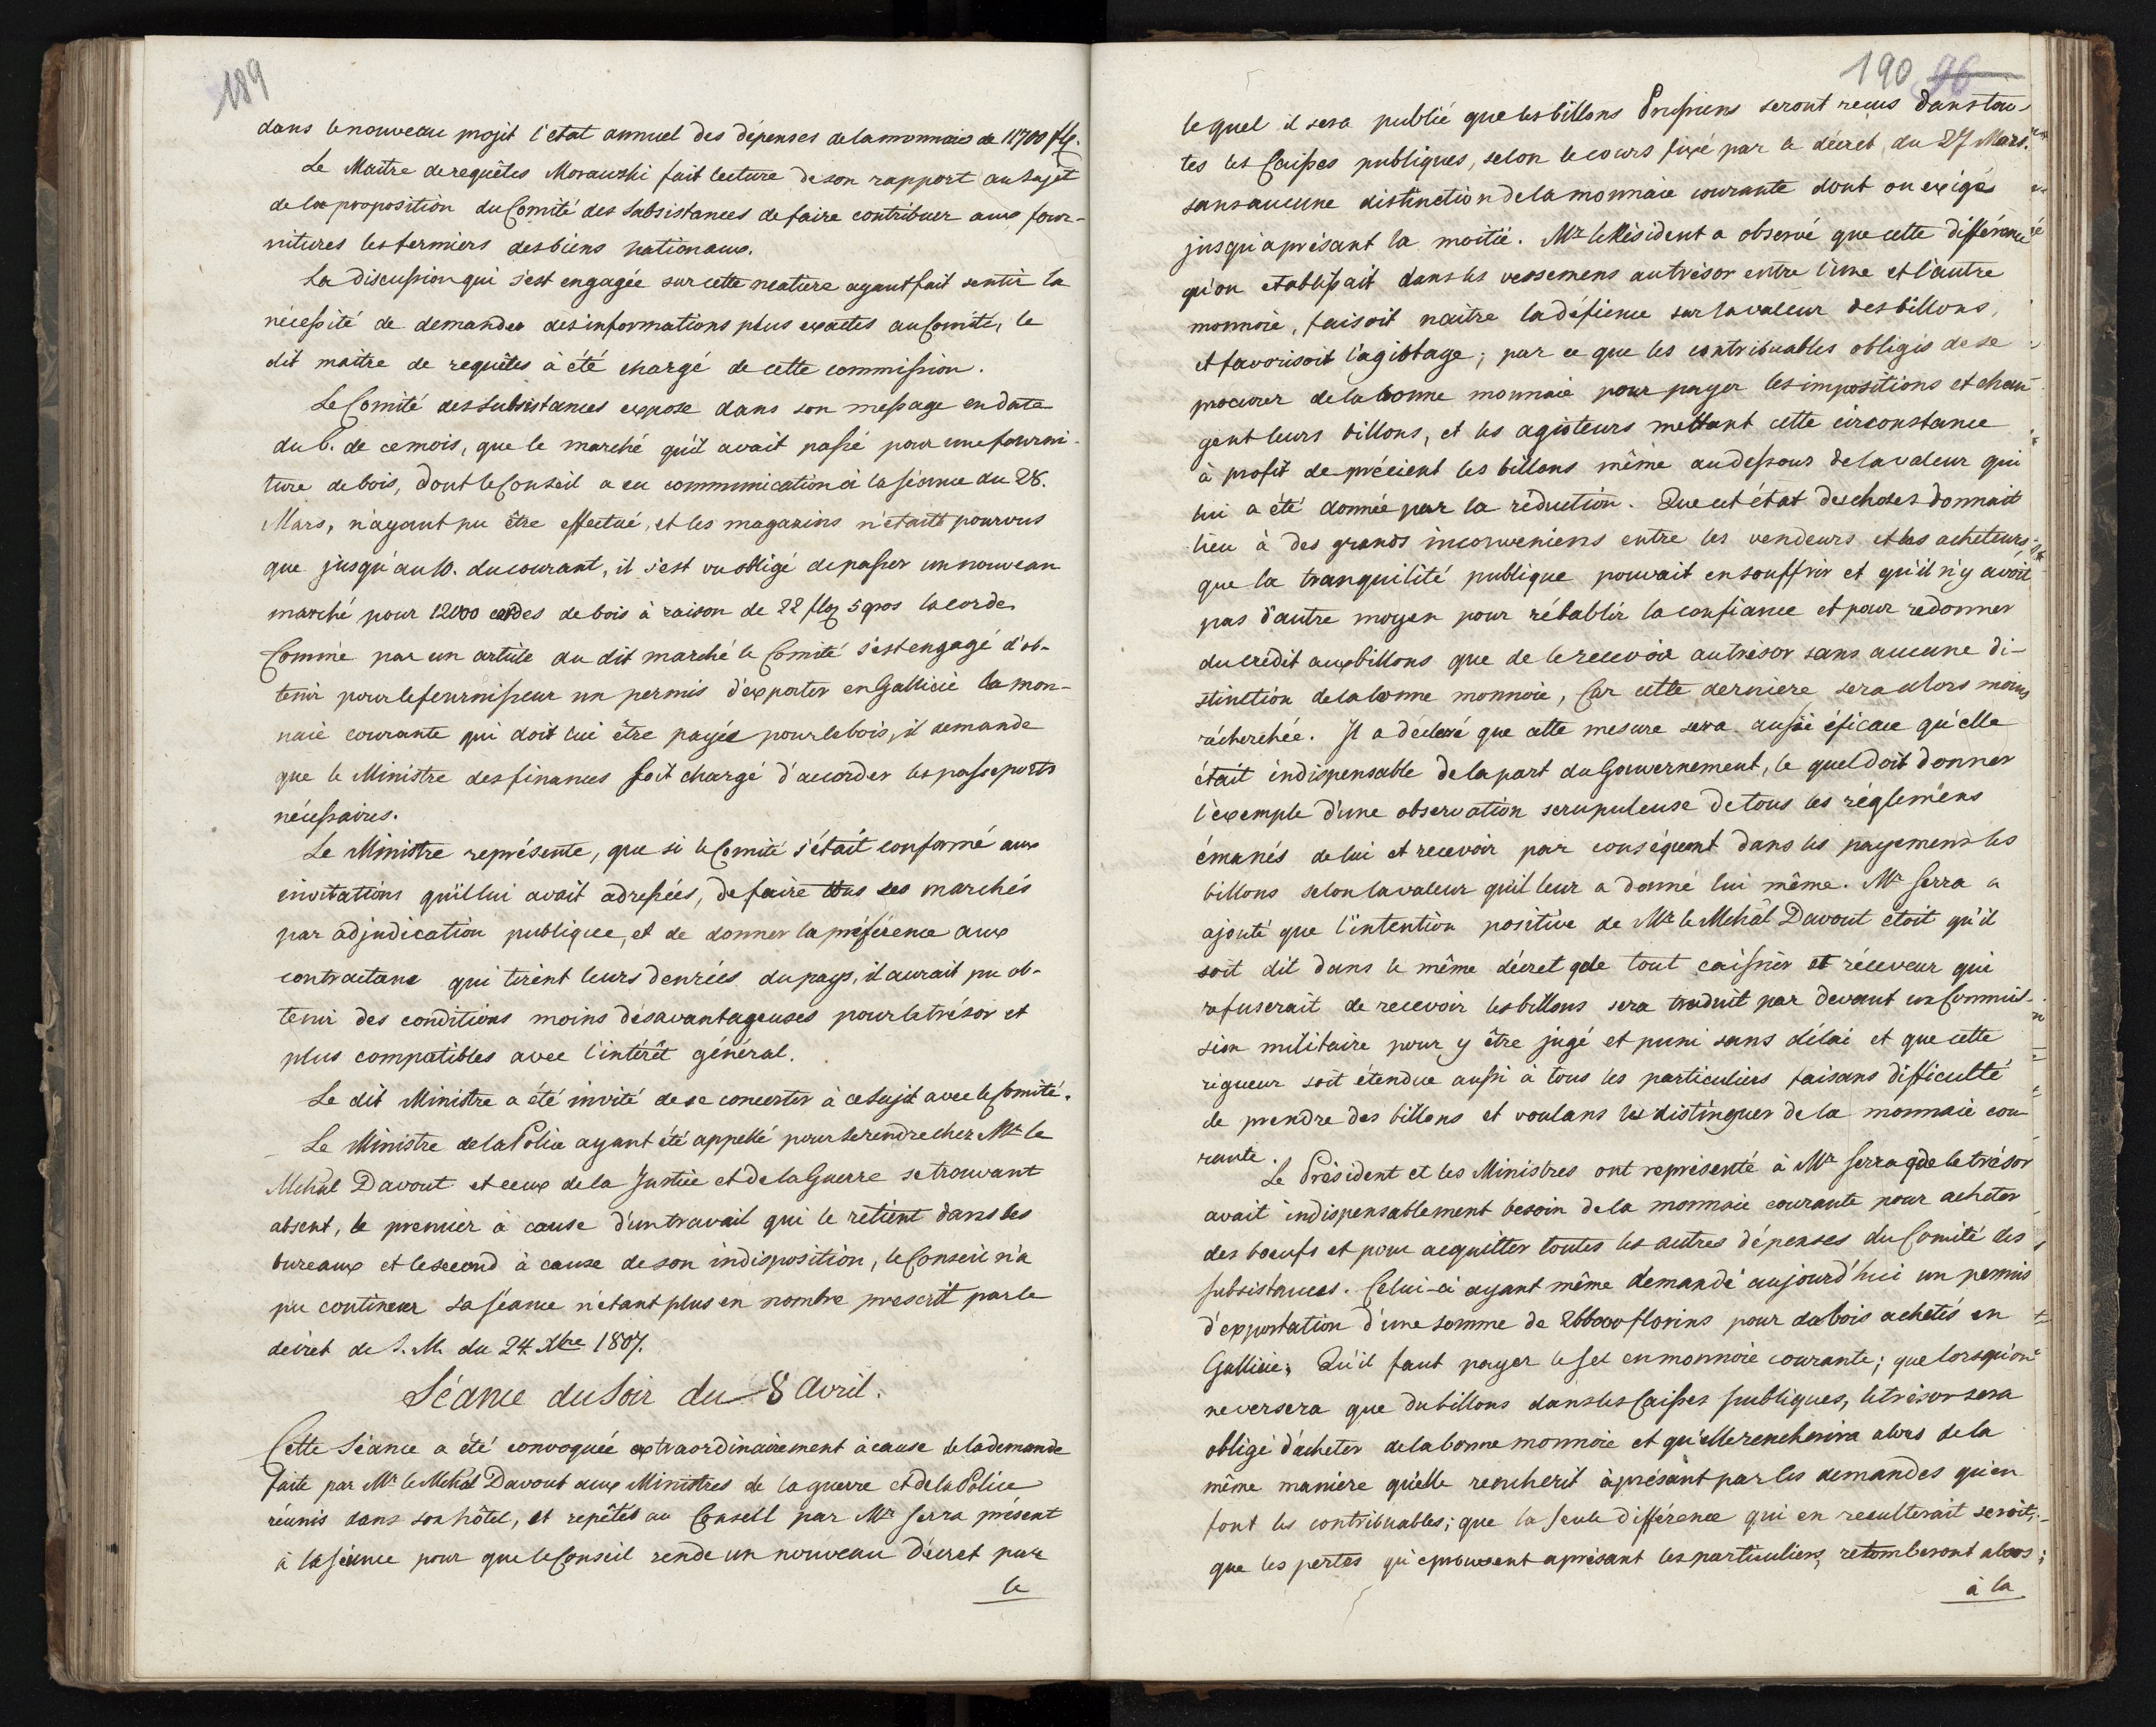 189
dans le nouveau projet l'état annuel des dépenses de la monnaie de 11700 flp.
Le Maitre de requêtes Morawski fait lecture de son rapport au Sujet
de la proposition du Comité des Subsistances de faire contribuer aux four-
nitures les fermiers des biens nationaux.
La discussion qui s'est engagée sur cette matiere ayant fait sentir la
nécessité de demander des informations plus exactes au Comité, le
dit maître de requêtes à été chargé de cette commission.
Le Comité des Subsistances expose dans son message en date
du 6. de ce mois, que le marché qu'il avait passé pour une fourni-
ture de bois, dont le Conseil a eu communication à la séance du 28.
Mars, n'ayant pu être effectué, et les magazins n'étant pourvus
que jusqu'au 10. du courant, il s'est vu obligé de passer un nouveau
marché pour 12000 cordes de bois à raison de 22 flp 5 gros la corde.
Comme par un article du dit marché le Comité s'est engagé d'ob-
tenir pour le fournisseur un permis d'exporter en Gallicie la mon-
naie courante qui doit lui être payée pour le bois, il demande
que le Ministre des finances soit chargé d'accorder les passeports
nécessaires.
Le Ministre représente, que si le Comité s'était conformé aux
invitations qu'il lui avait adressées, de faire tous ses marchés
par adjudication publique, et de donner la préférence aux
contractans qui tirent leurs denrées du pays, il aurait pu ob-
tenir des conditions moins désavantageuses pour le trésor et
plus compatibles avec l'intérêt général.
Le dit Ministre a été invité de se concerter à ce Sujet avec le Comité.
Le Ministre de la Police ayant été appellé pour se rendre chez Mr le
Mchal Davout et ceux de la Justice et de la Guerre se trouvant
absent, le premier à cause d'un travail qui le retient dans les
bureaux et le second à cause de son indisposition, le Conseil n'a
pu continuer sa séance n'étant plus en nombre prescrit par le
décret de S. M. du 24. Xbre 1807.
Séance du Soir du 8 Avril.
Cette Séance a été convoquée extraordinairement à cause de la demande
faite par Mr le Mchal Davout aux Ministres de la guerre et de la Police
réunis dans son hôtel, et repétés au Conseil par Mr Serra présent
à la séance pour que le Conseil rende un nouveau Décret par
le
190 96
le quel il sera publié que les billons Prussiens seront reçus dans tou-
tes les Caisses publiques, selon le cours fixé par le décret du 27 Mars.
sans aucune distinction de la monnaie courante dont on exigea
jusqu'aprésant la moitié. Mr le Résident a observé que cette différence
qu'on etablissait dans les versemens au trésor entre l'une et l'autre
monnoie, faisoit naitre la défience sur la valeur des billons,
et favorisoit l'agiotage; par ce que les contribuables obligés de se
procurer de la bonne monnaie pour payer les impositions et chan-
gent leurs billons, et les agioteurs mettant cette circonstance
à profit déprécient les billons même au dessous de la valeur qui
lui a été donnée par la réduction. Que cet état des choses donnait
lieu à des grands inconveniens entre les vendeurs et les acheteurs
que la tranquilité publique pouvait en souffrir et qu'il n'y avoit
pas d'autre moyen pour rétablir la confiance et pour redonner
du crédit aux billons que de le recevoir au trésor sans aucune di-
stinction de la bonne monnoie, Car cette derniere sera alors moins
récherchée. Il a déclaré que cette mesure sera aussi éficace qu'elle
était indispensable de la part du Gouvernement, le quel doit donner
l'exemple d'une observation scrupuleuse de tous les réglemens
émanés de lui et recevoir par conséquent dans les payemens les
billons selon la valeur qu'il leur a donné lui même. Mr Serra a
ajouté que l'intention positive de Mr le Mchal Davout étoit qu'il
soit dit dans le même décret que tout caissier et réceveur qui
refuserait de recevoir les billons sera traduit par devant un Commis-
sion militaire pour y être jugé et puni sans délai et que cette
rigueur soit étendue aussi à tous les particuliers faisans difficulté
de prendre des billons et voulans les distinguer de la monnaie cou-
rante.
Le Président et les Ministres ont représenté à Mr Serra que le trésor
avait indispensablement besoin de la monnaie courante pour acheter
des boeufs et pour acquitter toutes les autres dépenses du Comité des
subsistances. Celui-ci ayant même demandé aujourd'hui un permis
d'exportation d'une somme de 266000 florins pour du bois achetés en
Gallicie; Qu'il faut payer le Sel en monnoie courante; que lorsqu'on
ne versera que du billons dans les Caisses publiques, le trésor sera
obligé d'acheter de la bonne monnoie et qu'elle rencherira alors de la
même manière qu'elle rencherit àprésant par les demandes qu'en
font les contribuables; que la seule différence qui en resulterait seroit,
que les pertes qu'eprouvent aprésant les particuliers, retomberont alors
à la